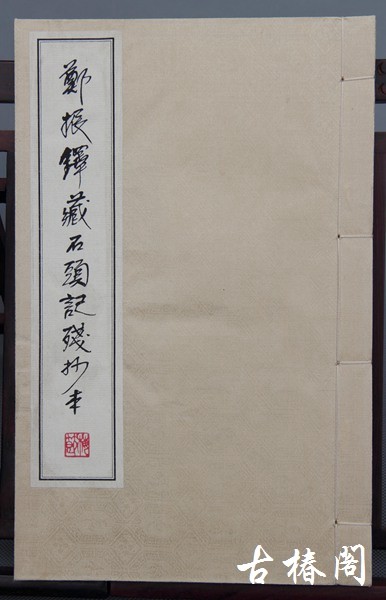 鄭振鐸藏石頭記殘抄本
古椿閣